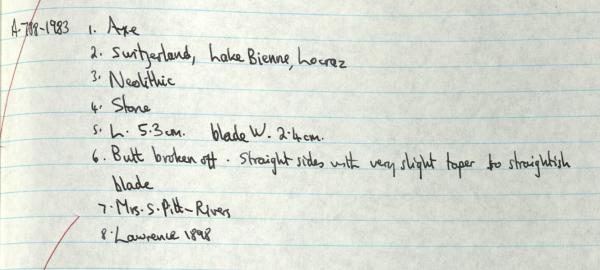 A.788-1983 1. Axe
2. Switzerland, Lake Bienne, Locraz
3. Neolithic
4. Stone
5. L. 5.3cm. blade W. 2.4cm.
6. Butt broken off. Straight sides with very slight taper to straightish
blade
7. Mrs. S. Pitt-Rivers
8. Lawrence 1898